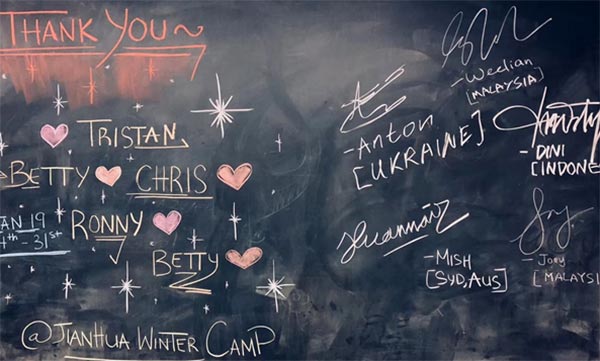 THANK YOU~
TRISTAN
BETTY CHRIS
AN 19 RONNY
4th - 31st
BETTY
@JIANHUA WINTER CAMP
- Weelian
[MALAYSIA]
- Anton
[UKRAINE]
- DINI
[INDONE
- MISH
[SYD, AUS]
- Joey
[MALAYSI